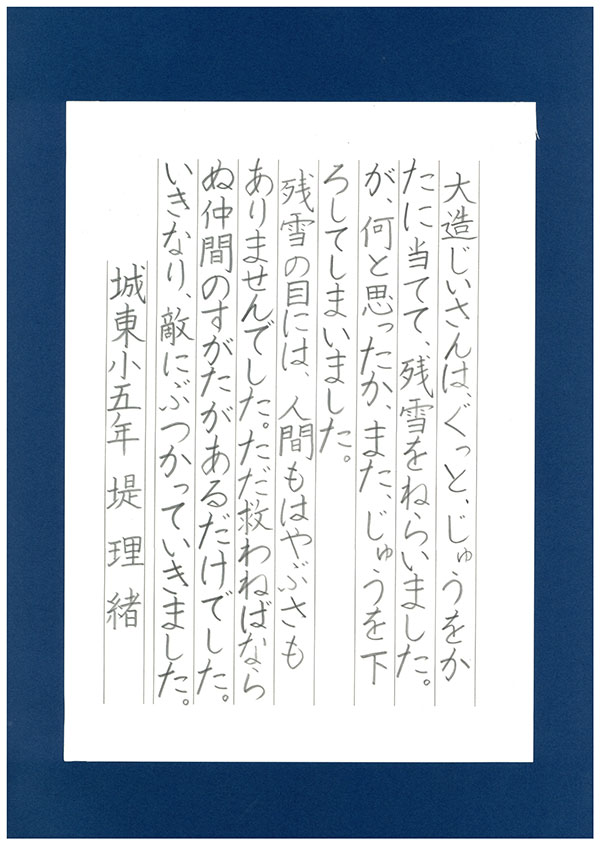 大造じいさんは、ぐっと、じゅうをか
たに当てて、残雪をねらいました。
が、何と思ったか、また、じゅうを下
ろしてしまいました。
残雪の目には、人間もはやぶさも
ありませんでした。ただ救わねばなら
ぬ仲間のすがたがあるだけでした。
いきなり、敵にぶつかっていきました。
城東小五年 堤 理 緒